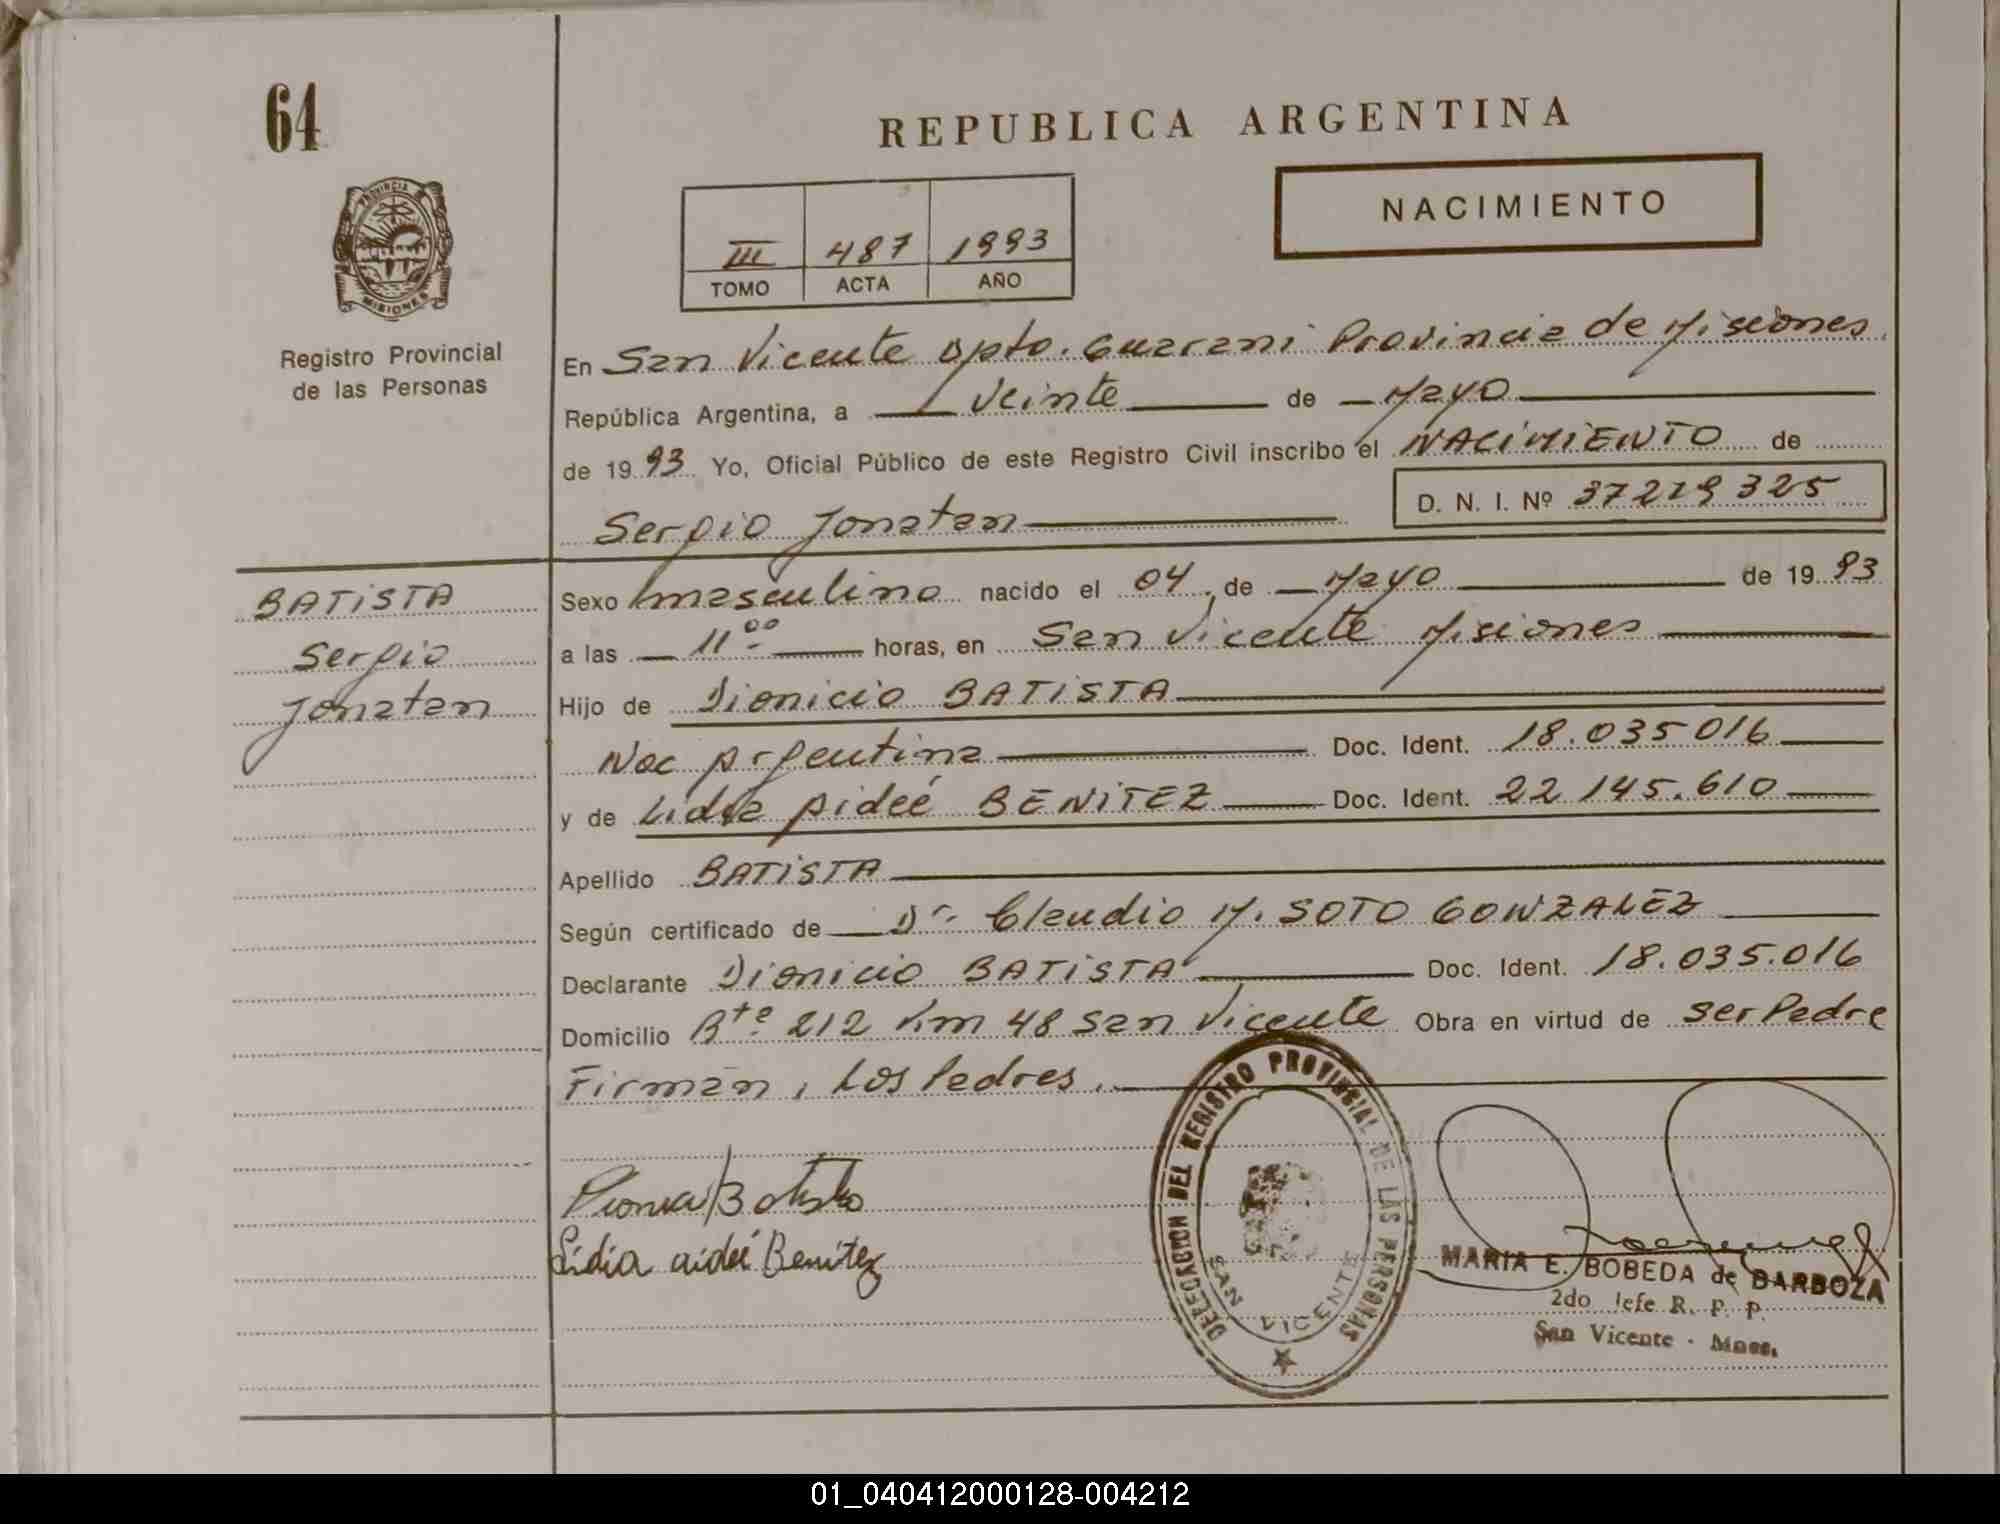 64
REPUBLICA ARGENTINA
NACIMIENTO
III 487 1993
TOMO ACTA AÑO
PROVINCIA
MISIONES
Registro Provincial
de las Personas
En San Vicente Dpto. Guarani Provincia de Misiones.
República Argentina, a Veinte de Mayo
de 1993 Yo, Oficial Público de este Registro Civil inscribo el NACIMIENTO de
D. N. I. Nº 37219325
Sergio Jonatan
BATISTA
Sergio
Jonatan
Sexo masculino nacido el 04 de Mayo de 1993
a las 11⁰⁰ horas, en San Vicente Misiones
Hijo de Dionicio BATISTA
Nac Argentina Doc. Ident. 18.035016
y de Lidia Aideé BENITEZ Doc. Ident. 22 145.610
Apellido BATISTA
Según certificado de Dr. Claudio M. SOTO GONZALEZ
Declarante Dionicio BATISTA Doc. Ident. 18.035.016
Domicilio Rta. 212 Km 48 San Vicente Obra en virtud de ser Padre
Firman, Los Padres.
Batista
Lidia aideé Benítez
DELEGACION DEL REGISTRO PROVINCIAL DE LAS PERSONAS
SAN VICENTE
MARIA E. BOBEDA de BARBOZA
2do Jefe R. P. P.
San Vicente - Mnes.
01_040412000128-004212